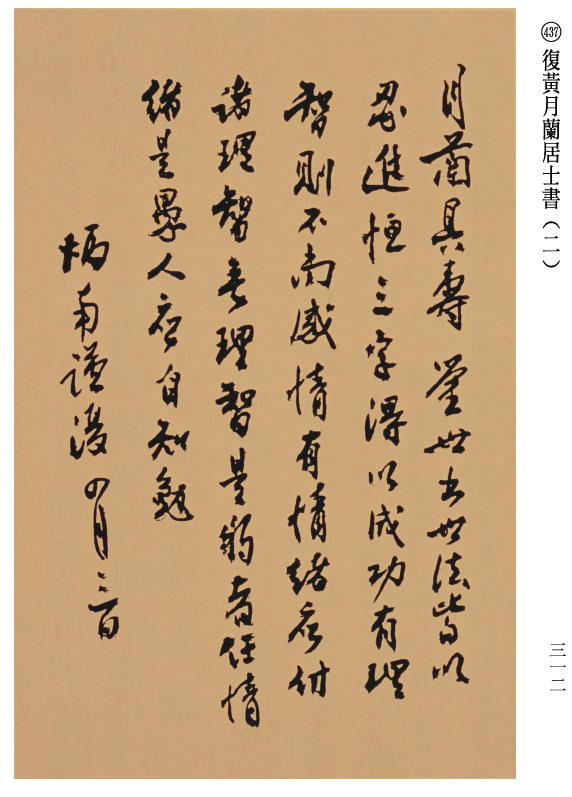 437 復黃月蘭居士書（二）
月蘭具壽 鑒世出世法皆以
忍進恒三字得以成功有理
智則不尚感情有情緒應付
諸理智無理智是弱者任情
緒是愚人應自知勉
炳南謹復 四月三日
三一二